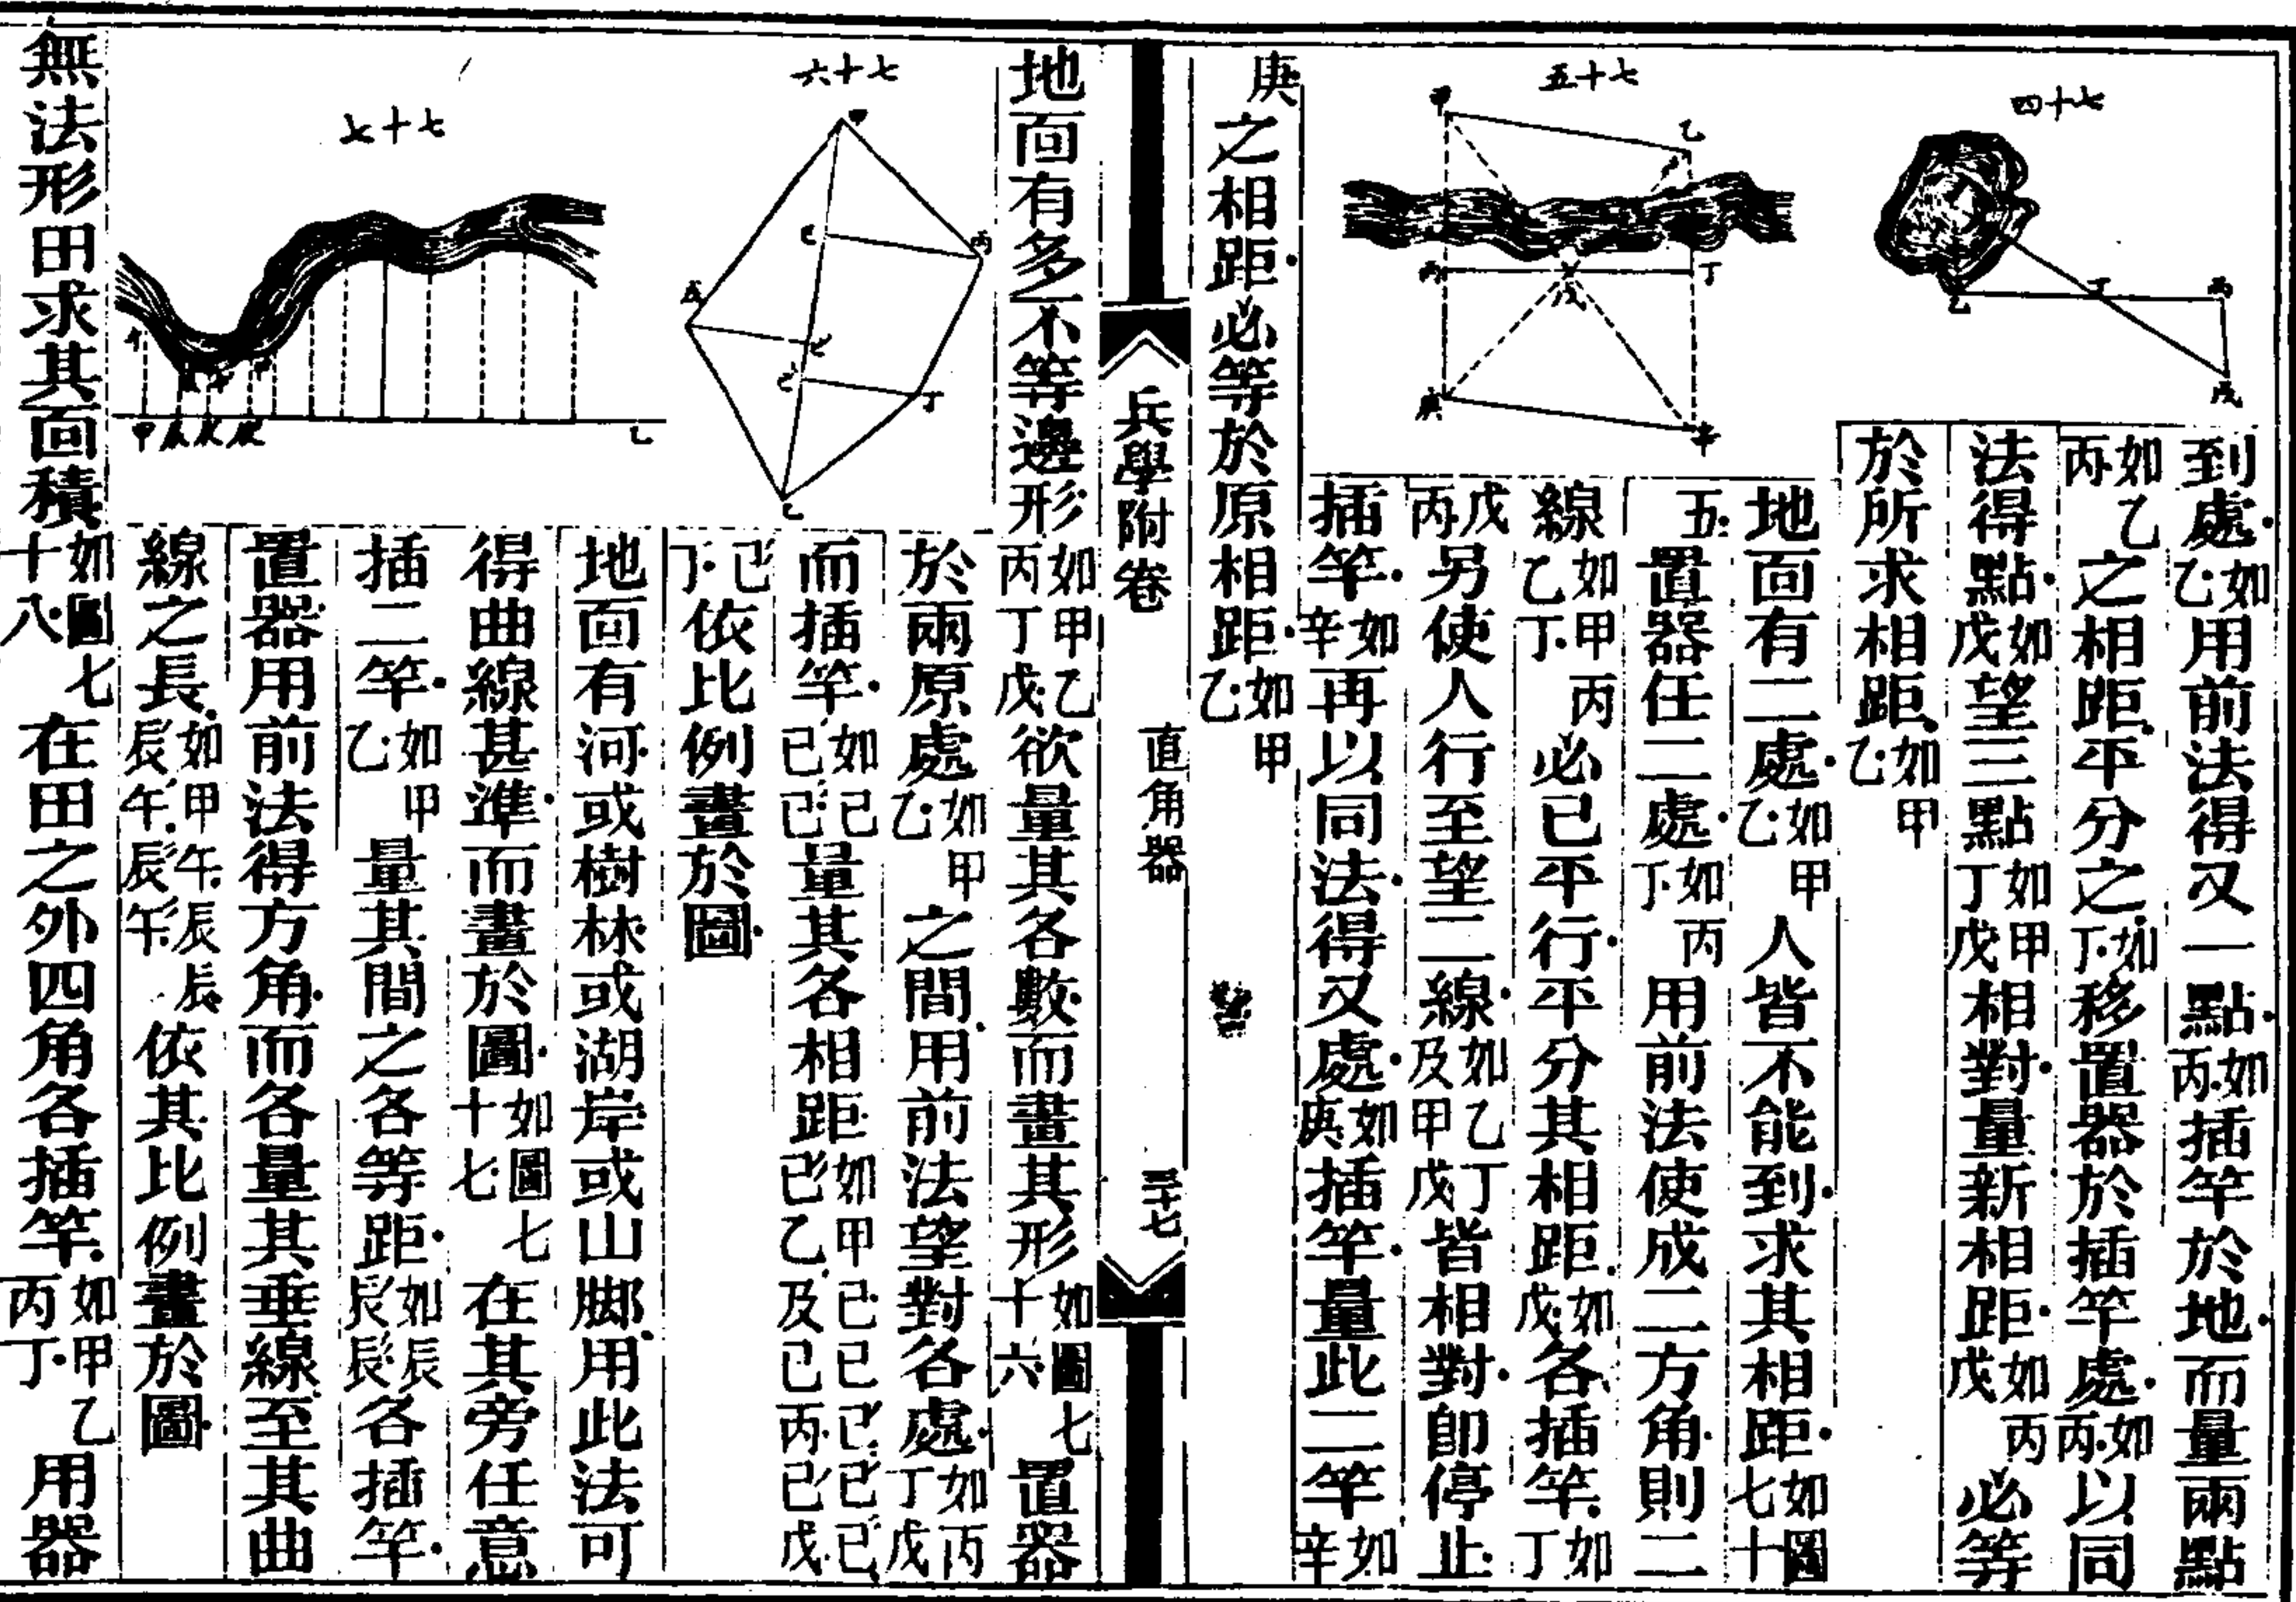 四十七
到處如乙用前法得又一點如丙插竿於地而量兩點
如乙丙之相距平分之如丁移置器於插竿處如丙以同
法得點如戊望三點如甲丁戊相對量新相距如丙戊必等
於所求相距如甲乙
五十七
地面有二處如甲乙人皆不能到求其相距如圖七十
五置器任二處如丙丁用前法使成二方角則二
線如甲丙乙丁必已平行平分其相距如戊各插竿如丁
戊丙另使人行至望二線如乙丁及甲戊皆相對即停止
插竿如辛再以同法得又處如庚插竿量此二竿如辛
庚之相距必等於原相距如甲乙
兵學附卷
直角器
三十七
地面有多不等邊形如甲乙丙丁戊欲量其各數而畫其形如圖七十六置器
六十七
於兩原處如甲乙之間用前法望對各處如丙丁戊
而插竿如己己己量其各相距如甲己己己己己己乙及己丙己戊
己丁依比例畫於圖
七十七
地面有河或樹林或湖岸或山腳用此法可
得曲線甚準而畫於圖如圖七十七在其旁任意
插二竿如甲乙量其間之各等距如辰辰辰各插竿
置器用前法得方角而各量其垂線至其曲
線之長如甲午辰辰午辰午依其比例畫於圖
無法形田求其面積如圖七十八在田之外四角各插竿如甲乙丙丁用器